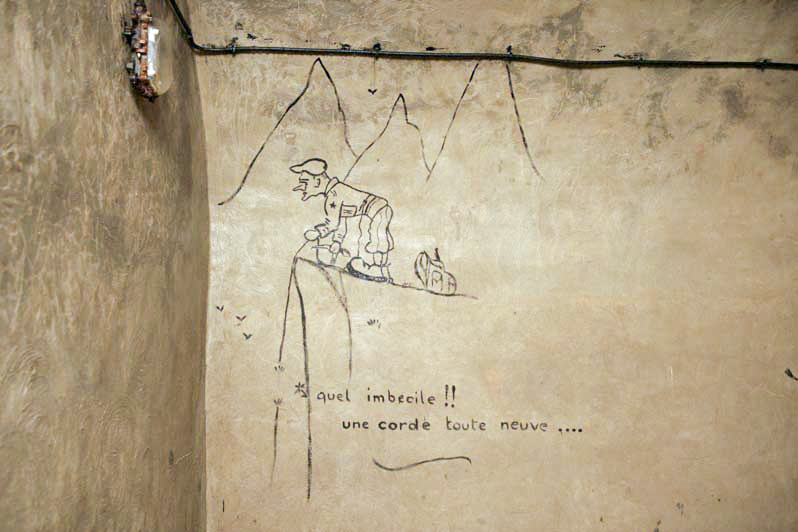 quel imbecile !!
une corde toute neuve ....